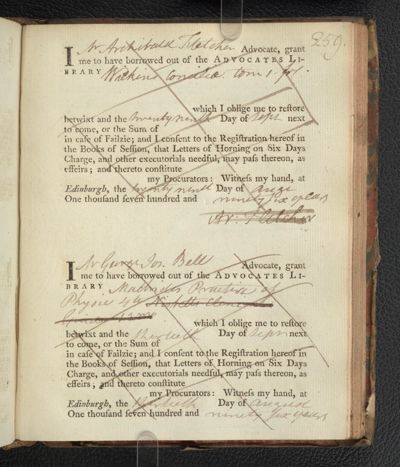 259.
I Mr Archibald Fletcher Advocate, grant
me to have borrowed out of the ADVOCATES LI-
BRARY Wilkins Concilia tom 1. fol.
which I oblige me to reſtore
betwixt and the twenty ninth Day of Sepr. next
to come, or the Sum of
in caſe of Failzie; and I conſent to the Regiſtration hereof in
the Books of Seſſion, that Letters of Horning on Six Days
Charge, and other executorials needful, may paſs thereon, as
effeirs; and thereto conſtitute
my Procurators: Witneſs my hand, at
Edinburgh, the twenty ninth Day of
One thouſand ſeven hundred and ninety six years
Ar. Fletcher
I Mr George Jos. Bell Advocate, grant
me to have borrowed out of the ADVOCATES LI-
BRARY Practice of
Physic
which I oblige me to reſtore
betwixt and the thirtieth Day of Sepr next
to come, or the Sum of
in caſe of Failzie; and I conſent to the Regiſtration hereof in
the Books of Seſſion, that Letters of Horning on Six Days
Charge, and other executorials needful, may paſs thereon, as
effeirs; and thereto conſtitute
my Procurators: Witneſs my hand, at
Edinburgh, the thirtieth Day of August
One thouſand ſeven hundred and ninety six years